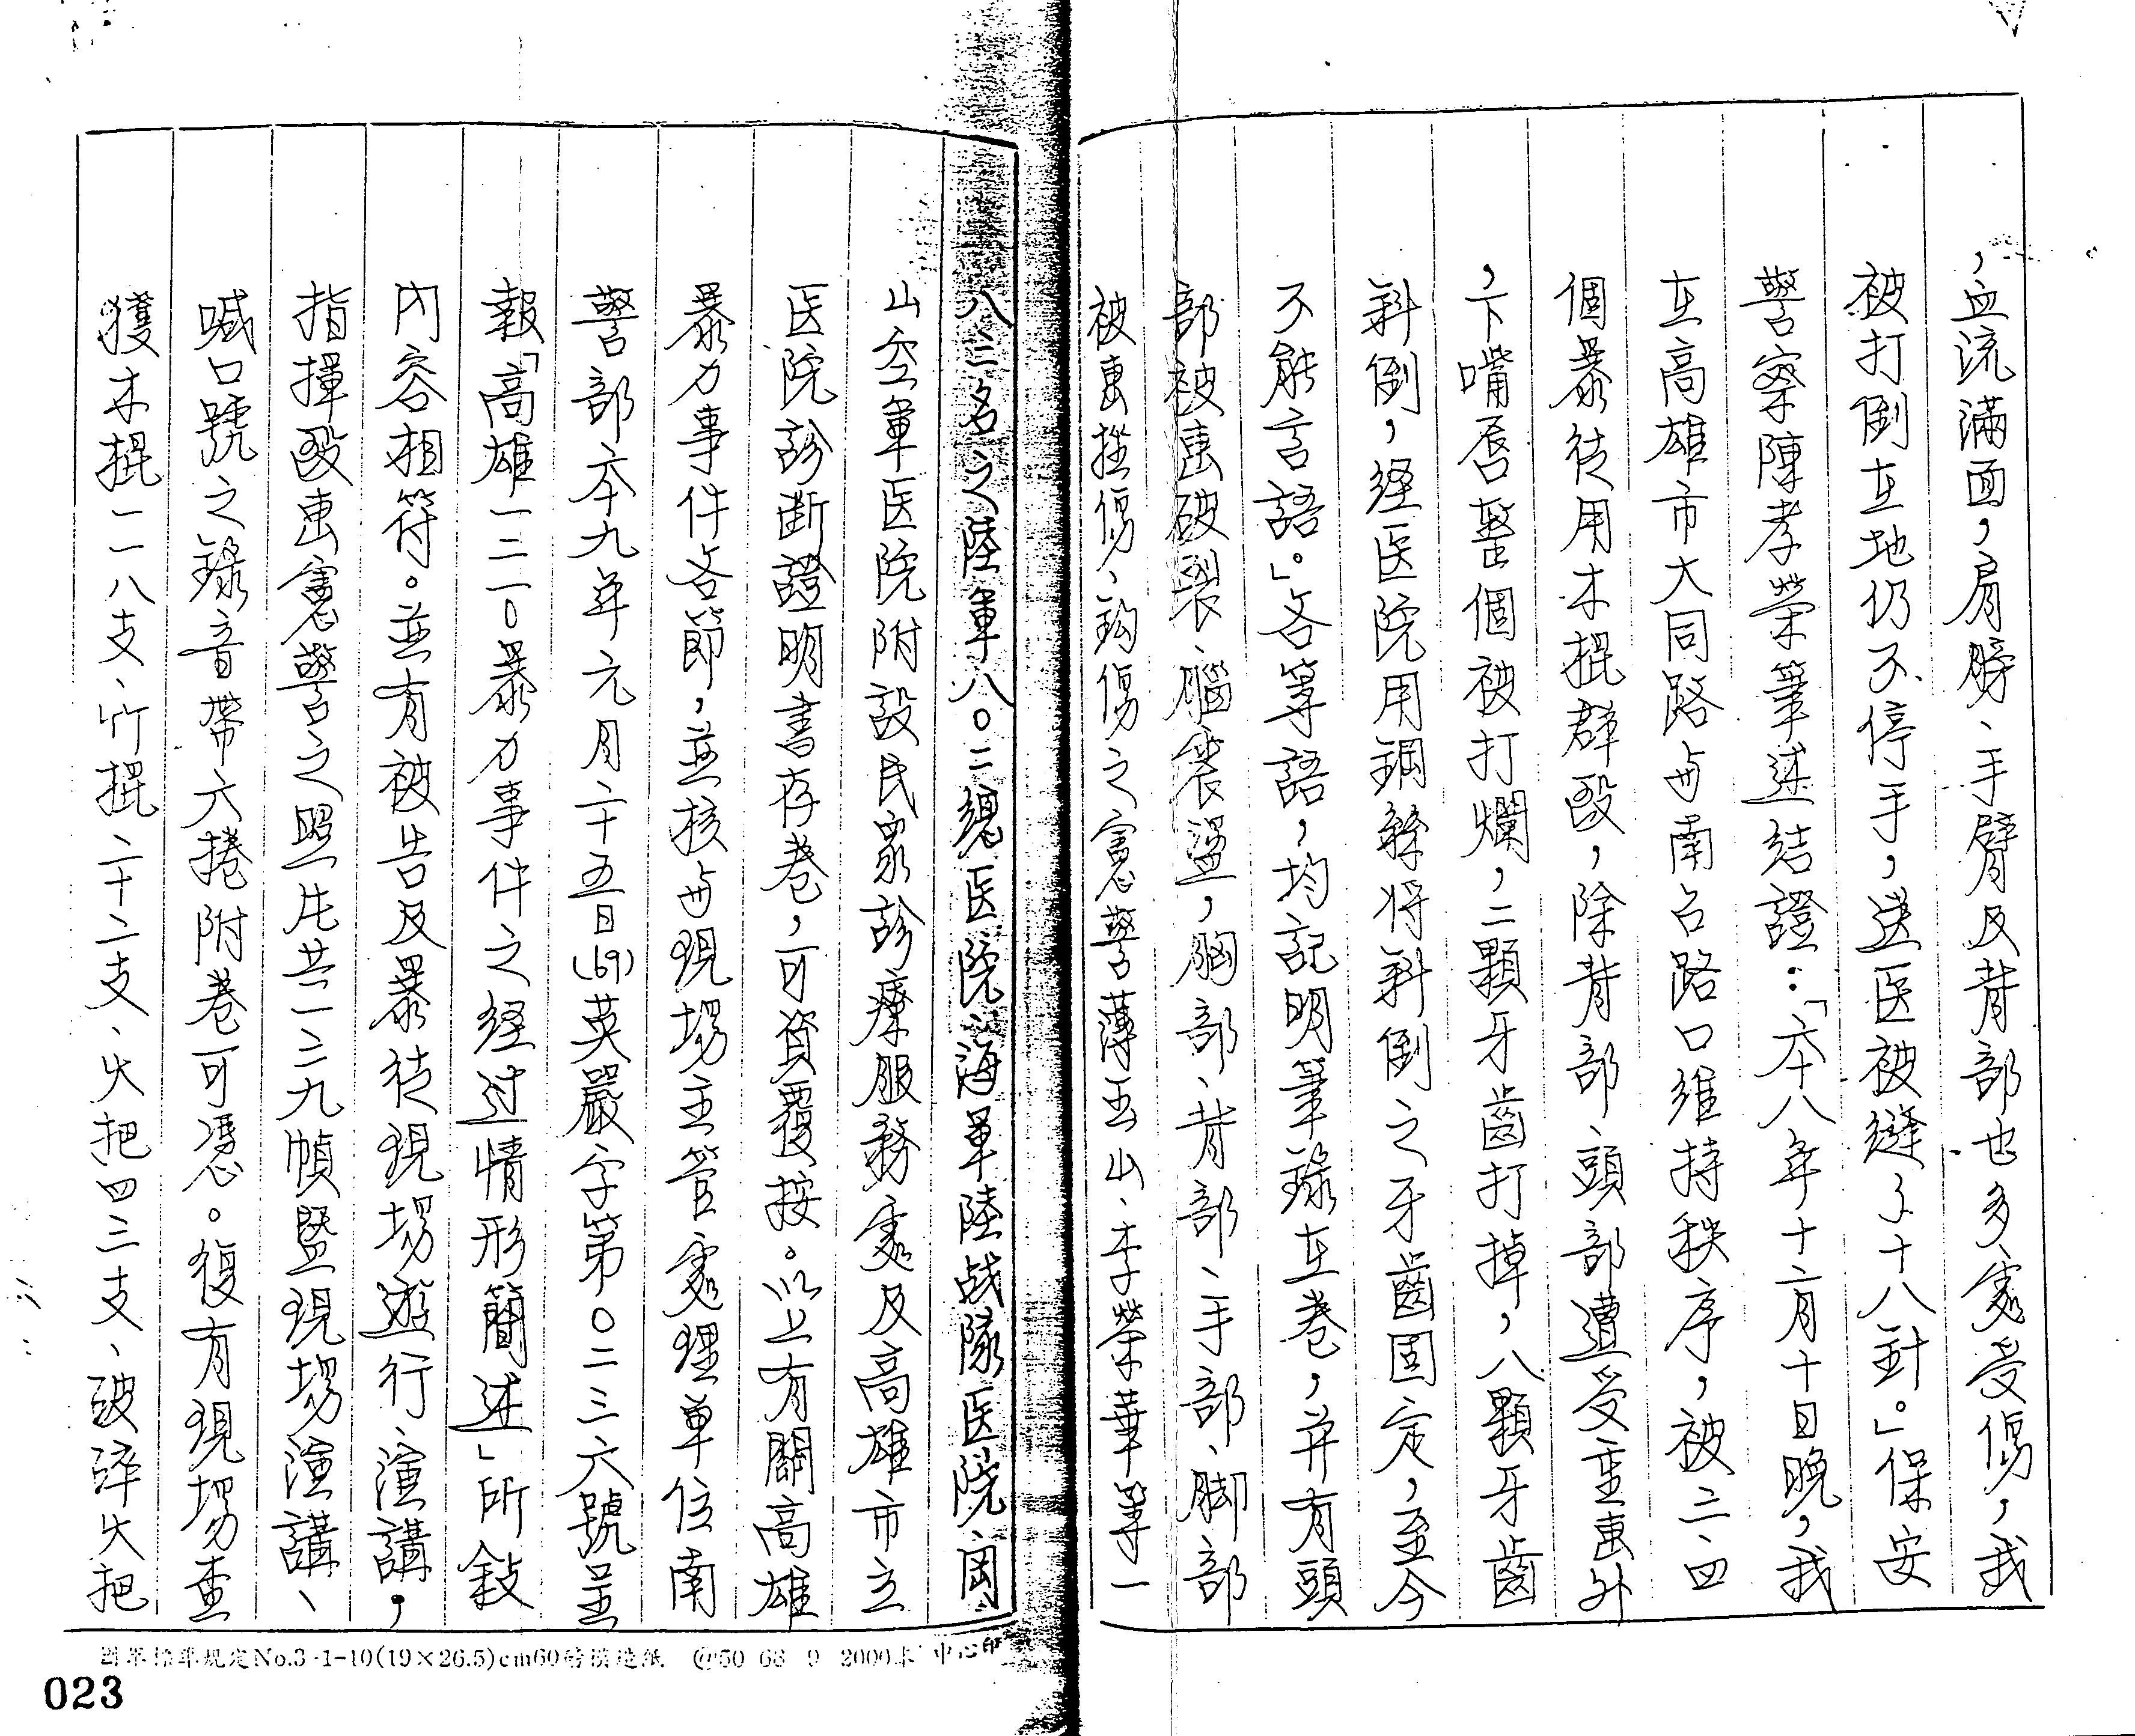 ，血流滿面，肩膀、手臂及背部也多處受傷，我
被打倒在地仍不停手，送医被縫了十八針。」保安
警察陳孝榮筆述結證：「本八年十二月十日晚，我
在高雄市大同路与南台路口維持秩序，被三、四
個暴徒用木棍群毆，除背部、頭部遭受重击外
，下嘴唇整個被打爛，二顆牙齒打掉，八顆牙齒
斜倒，経医院用鋼絲将斜倒之牙齒固定，至今
不能言語。」各等語，均記明筆錄在卷，并有頭
部被击破裂、腦震盪，胸部、背部、手部、脚部
被击挫傷、鈎傷之憲警薄玉山、李榮華等一
八三名之陸軍八〇二總医院、海軍陸战隊医院、岡
山空軍医院附設民眾診療服務處及高雄市立
医院診断證明書存卷，可資覆按。以上有關高雄
暴力事件各節，並核与現場主管處理單位南
警部本九年元月二十五日(69)英嚴字第〇二三六號呈
報「高雄一二一〇暴力事件之経过情形簡述」所敍
內容相符。並有被告及暴徒現場遊行、演講，
指揮毆击憲警之照片共一三九幀暨現場演講、
喊口號之錄音帶六捲附卷可憑。復有現場查
獲木棍一一八支、竹棍二十二支、火把四三支、破碎火把
No.3-1-10(19×26.5)cm60磅模造紙 @50 68 9 2000本 中心印
023